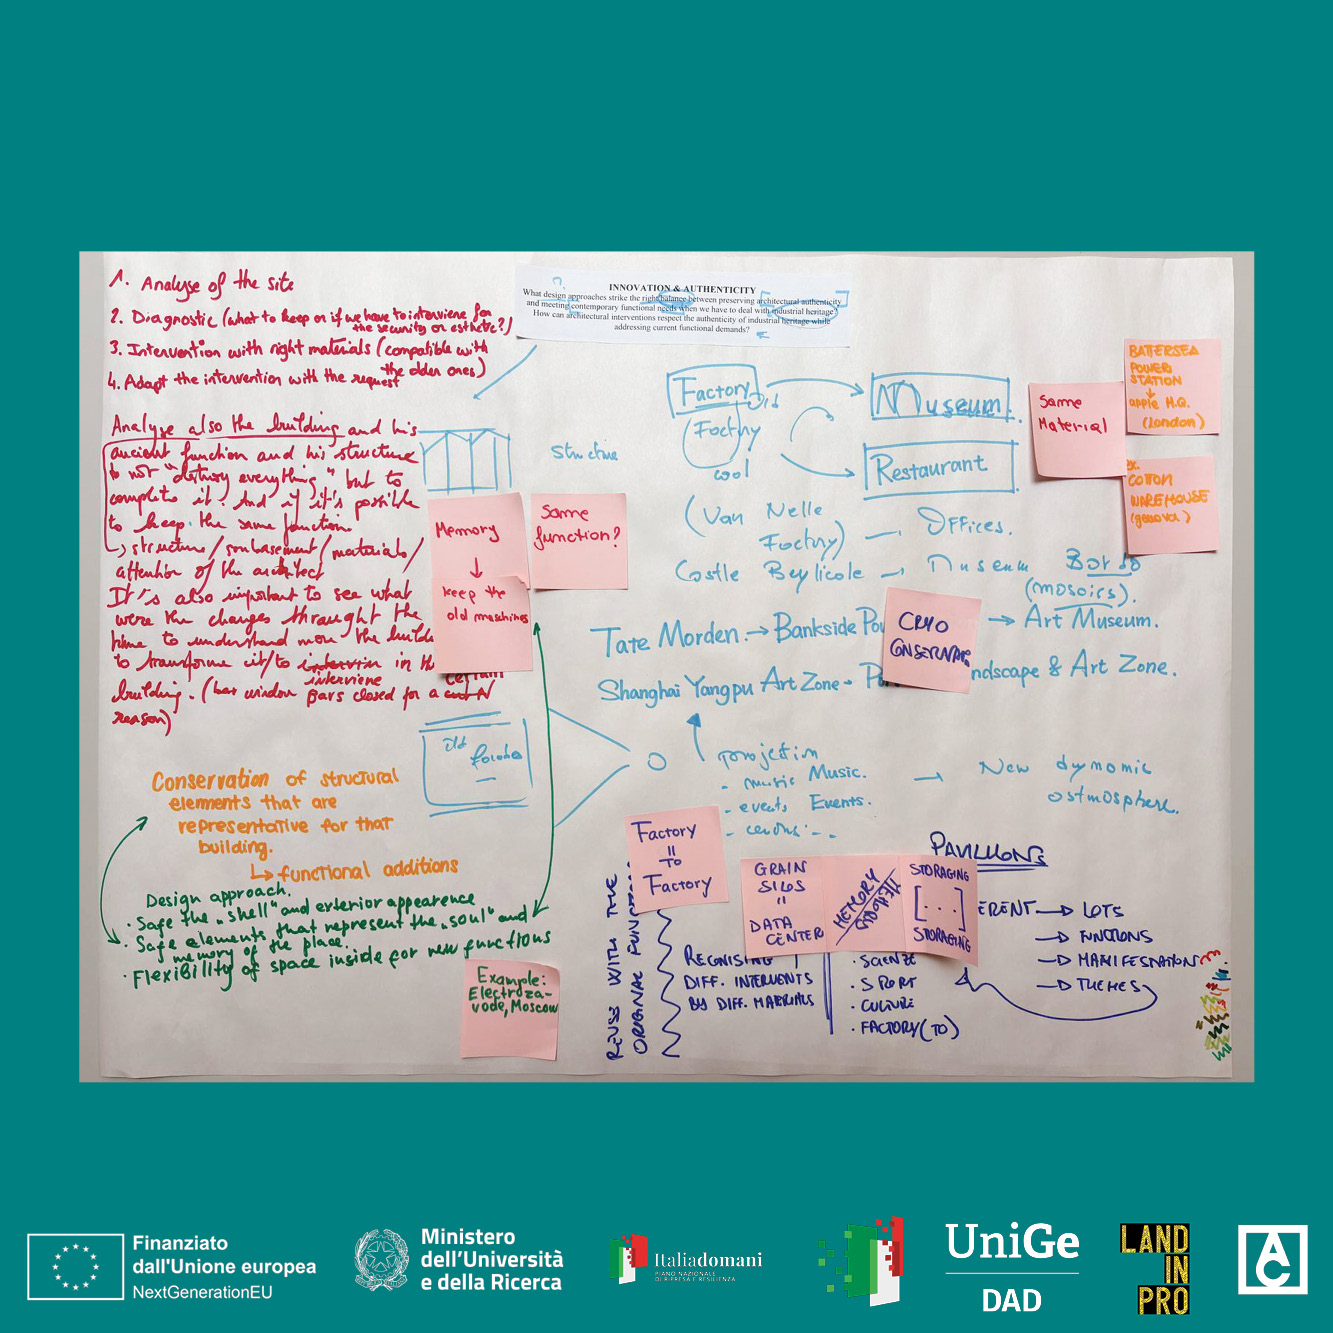 1. Analyse of the site
2. Diagnostic (what to keep or if we have to interviene for
the security or esthetic?)
3. Intervention with right materials (compatible with
the older ones)
4. Adapt the intervention with the request
Analyse also the building and his
ancient function and his structure
to not "destroy everything" but to
complete it. And if it's possible
to keep the same function
structure/soubasement/materials/
attention of the architect
It's also important to see what
were the changes throught the
time to understand
to transforme it/to intervin in the
interviene
building. (
bars closed for a
reason)
INNOVATION & AUTHENTICITY
What design approaches strike the right balance between preserving architectural authenticity
and meeting contemporary functional needs when we have to deal with industrial heritage?
How can architectural interventions respect the authenticity of industrial heritage while
addressing current functional demands?
?
structure
Memory
↓
keep the
old maschines
Same
function?
Factory
Old
(Factory
cool
Museum.
Restaurant
Same
Material
BATTERSEA
POWER
STATION
↓
apple H.Q.
(London)
ex.
COTTON
WAREHOUSE
(genova)
(Van Nelle
Factory) — Offices.
Castle
→ Museum
(mosaics).
Tate Morden. → Bankside Pow
→ Art Museum.
CRYO
Shanghai Yangpu Art Zone -
ndscape & Art Zone.
Old
projection
- music Music.
- events Events.
→ New dynamic
Conservation of structural
elements that are
representative for that
building.
↳ functional additions
Design approach.
· Safe the "shell" and exterior appearence
· Safe elements that represent the "soul" and
memory of the place.
· Flexibility of space inside for new functions
Example:
Electroza-
vode, Moscow
REUSE WITH THE
ORIGINAL
Factory
=
TO
Factory
GRAIN
SILOS
=
DATA
CENTER
MEMORY
STORAGING
[...]
STORAGING
PAVILLIONS
ERENT → LOTS
→ FUNCTIONS
→ MANIFESTATION
→ THEMES
RECNISING
DIFF. INTERVENTS
BY DIFF. MATERIALS
· SCIENZE
· SPORT
· CULTURE
· FACTORY (TO)
Finanziato
dall'Unione europea
NextGenerationEU
Ministero
dell'Università
e della Ricerca
Italiadomani
PIANO NAZIONALE
DI RIPRESA E RESILIENZA
UniGe
DAD
LAND
IN
PRO
AC